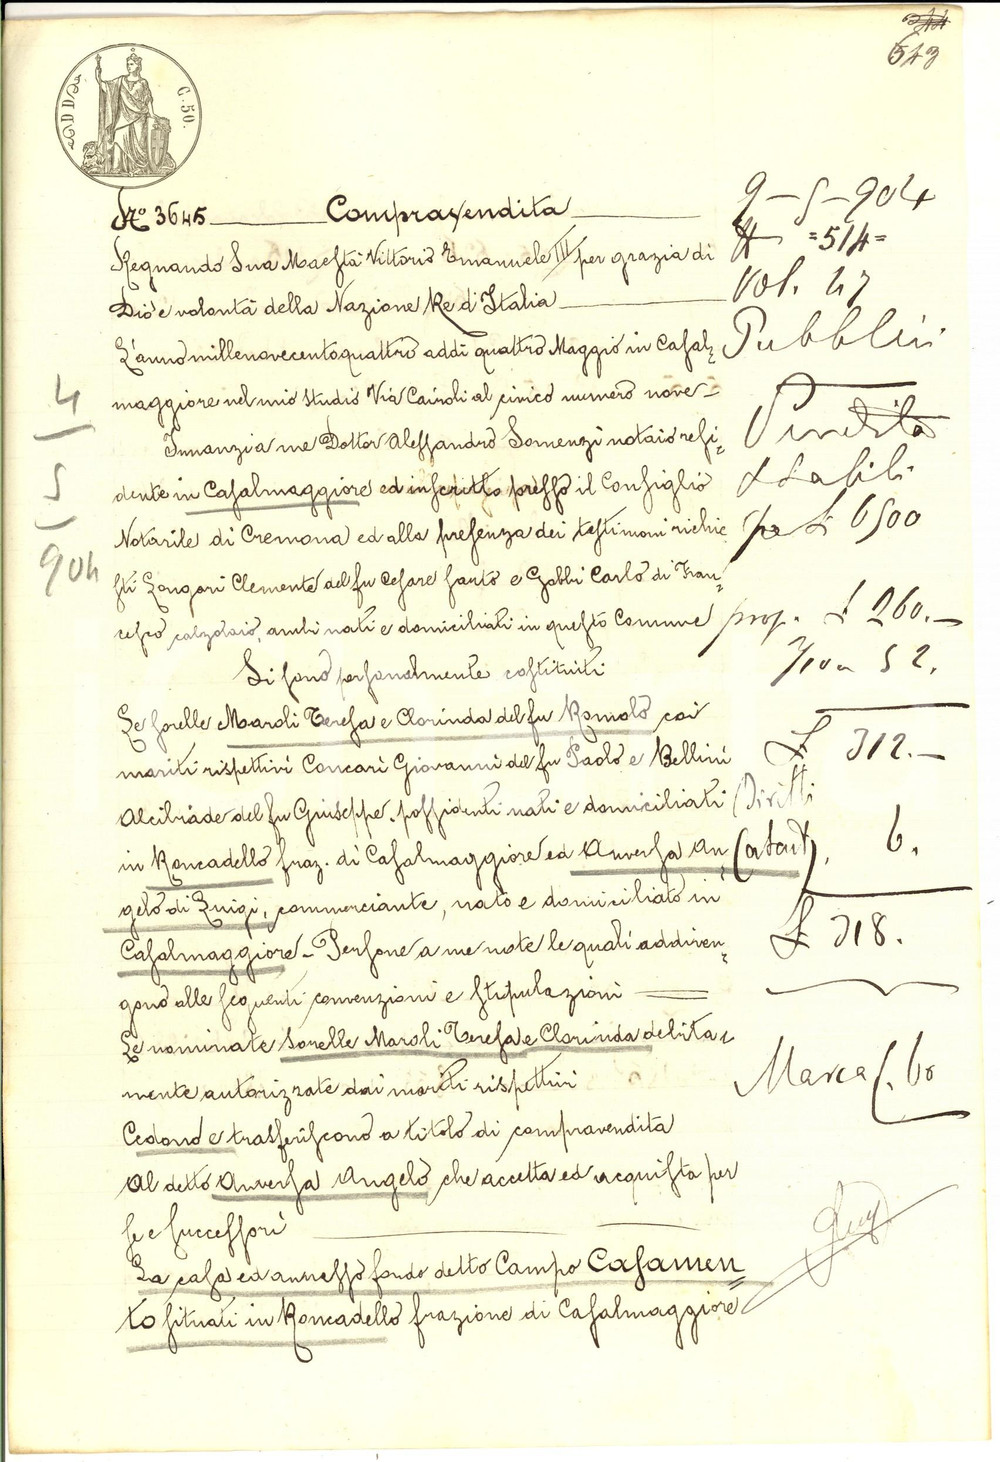 543
C. 50.
No 3645 Compravendita
Regnando Sua Maestà Vittorio Emanuele III per grazia di
Dio e volontà della Nazione Re d'Italia
L'anno millenovecentoquattro addì quattro Maggio in Casal=
maggiore nel mio studio Via Cairoli al civico numero nove
Innanzi a me Dottor Alessandro Somenzi notaio resi=
dente in Casalmaggiore ed inscritto presso il Consiglio
Notarile di Cremona ed alla presenza dei testimoni richie
sti Zangari Clemente del fu Cesare sarto e Gobbi Carlo di Fran=
cesco calzolaio, ambi nati e domiciliati in questo Comune
Si sono personalmente costituiti
Le sorelle Maroli Teresa e Clorinda del fu Romolo coi
mariti rispettivi Concari Giovanni del fu Paolo e Bellini
Alcibiade del fu Giuseppe, possidenti nati e domiciliati
in Roncadello fraz. di Casalmaggiore ed Anversa An=
gelo di Luigi, commerciante, nato e domiciliato in
Casalmaggiore - Persone a me note le quali addiven=
gono alle seguenti convenzioni e stipulazioni
Le nominate sorelle Maroli Teresa e Clorinda debita=
mente autorizzate dai mariti rispettivi
Cedono e trasferiscono a titolo di compravendita
Al detto Anversa Angelo che accetta ed acquista per
se e successori
La casa ed annesso fondo detto Campo Casamen=
to situati in Roncadello frazione di Casalmaggiore
9-5-904
=514=
Vol. 47
Pubblici
Vendita
Stabili
per £ 6500
prop. £ 260.-
52.
£ 312.-
Diritti
Catast. 6.
£ 318.
Marca £. 60
4
5
904